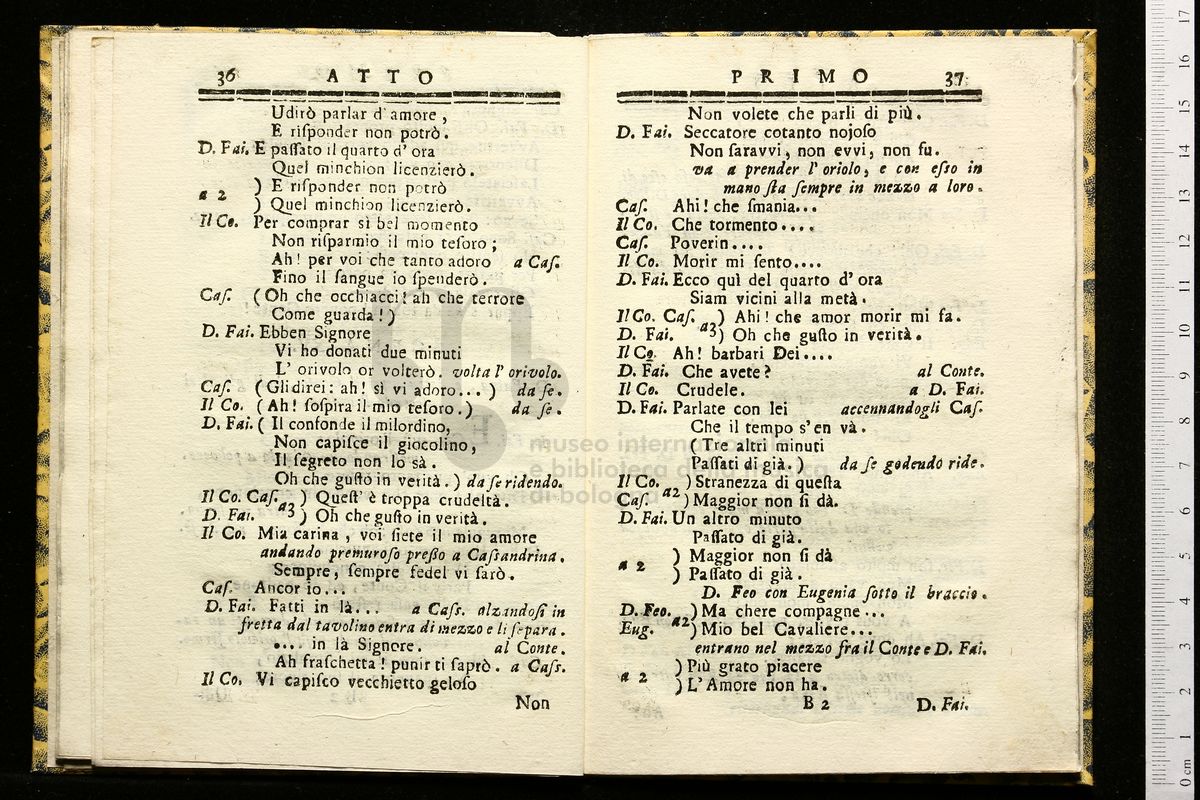 36 ATTO
Udirò parlar d'amore,
E riſponder non potrò.
D. Fai. E paſſato il quarto d'ora
Quel minchion licenzierò.
a 2 ) E riſponder non potrò
) Quel minchion licenzierò.
Il Co. Per comprar sì bel momento
Non riſparmio il mio teſoro;
Ah! per voi che tanto adoro a Caſ.
Fino il ſangue io ſpenderò.
Caſ. (Oh che occhiacci! ah che terrore
Come guarda!)
D. Fai. Ebben Signore
Vi ho donati due minuti
L' orivolo or volterò. volta l' orivolo.
Caſ. (Gli direi: ah! sì vi adoro...) da ſe.
Il Co. (Ah! ſoſpira il mio teſoro.) da ſe.
D. Fai. (Il confonde il milordino,
Non capiſce il giocolino,
Il ſegreto non lo sà.
Oh che guſto in verità.) da ſe ridendo.
Il Co. Caſ. a3 ) Queſt' è troppa crudeltà.
D. Fai. ) Oh che guſto in verità.
Il Co. Mia carina, voi ſiete il mio amore
andando premuroſo preßo a Caſſandrina.
Sempre, ſempre fedel vi ſarò.
Caſ. Ancor io...
D. Fai. Fatti in là... a Caſſ. alzandoſi in
fretta dal tavolino entra di mezzo e li ſepara.
.... in là Signore. al Conte.
Ah fraſchetta! punir ti ſaprò. a Caſſ.
Il Co. Vi capiſco vecchietto geloſo
Non
PRIMO 37
Non volete che parli di più.
D. Fai. Seccatore cotanto nojoſo
Non ſaravvi, non evvi, non fu.
va a prender l' oriolo, e con eſſo in
mano ſta ſempre in mezzo a loro.
Caſ. Ahi! che ſmania...
Il Co. Che tormento....
Caſ. Poverin....
Il Co. Morir mi ſento....
D. Fai. Ecco quì del quarto d'ora
Siam vicini alla metà.
Il Co. Caſ. a3 ) Ahi! che amor morir mi fa.
D. Fai. ) Oh che guſto in verità.
Il Co. Ah! barbari Dei....
D. Fai. Che avete? al Conte.
Il Co. Crudele. a D. Fai.
D. Fai. Parlate con lei accennandogli Caſ.
Che il tempo s'en và.
(Tre altri minuti
Paſſati di già.) da ſe godendo ride.
Il Co. a2 ) Stranezza di queſta
Caſ. ) Maggior non ſi dà.
D. Fai. Un altro minuto
Paſſato di già.
a 2 ) Maggior non ſi dà
) Paſſato di già.
D. Feo con Eugenia ſotto il braccio.
D. Feo. a2 ) Ma chere compagne...
Eug. ) Mio bel Cavaliere...
entrano nel mezzo fra il Conte e D. Fai.
a 2 ) Più grato piacere
) L'Amore non ha.
B 2 D. Fai.
museo internazionale
e biblioteca della musica
di bologna
0 cm 1 2 3 4 5 6 7 8 9 10 11 12 13 14 15 16 17